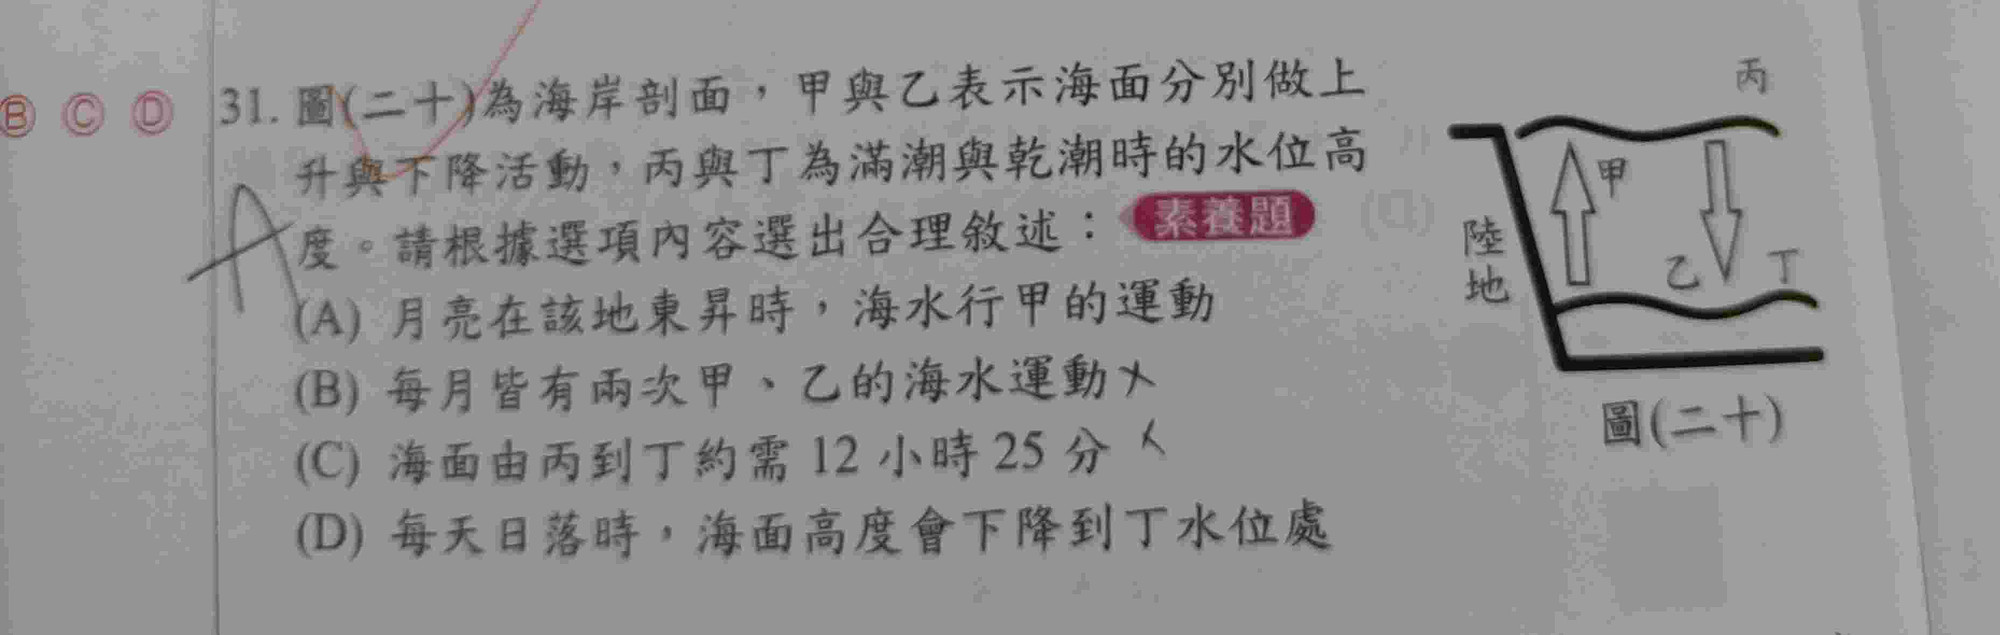 Ⓑ Ⓒ Ⓓ
31. 圖(二十)為海岸剖面，甲與乙表示海面分別做上
升與下降活動，丙與丁為滿潮與乾潮時的水位高
度。請根據選項內容選出合理敘述： 素養題
A
(A) 月亮在該地東昇時，海水行甲的運動
(B) 每月皆有兩次甲、乙的海水運動
(C) 海面由丙到丁約需 12 小時 25 分
(D) 每天日落時，海面高度會下降到丁水位處
丙
甲
乙
丁
陸地
圖(二十)